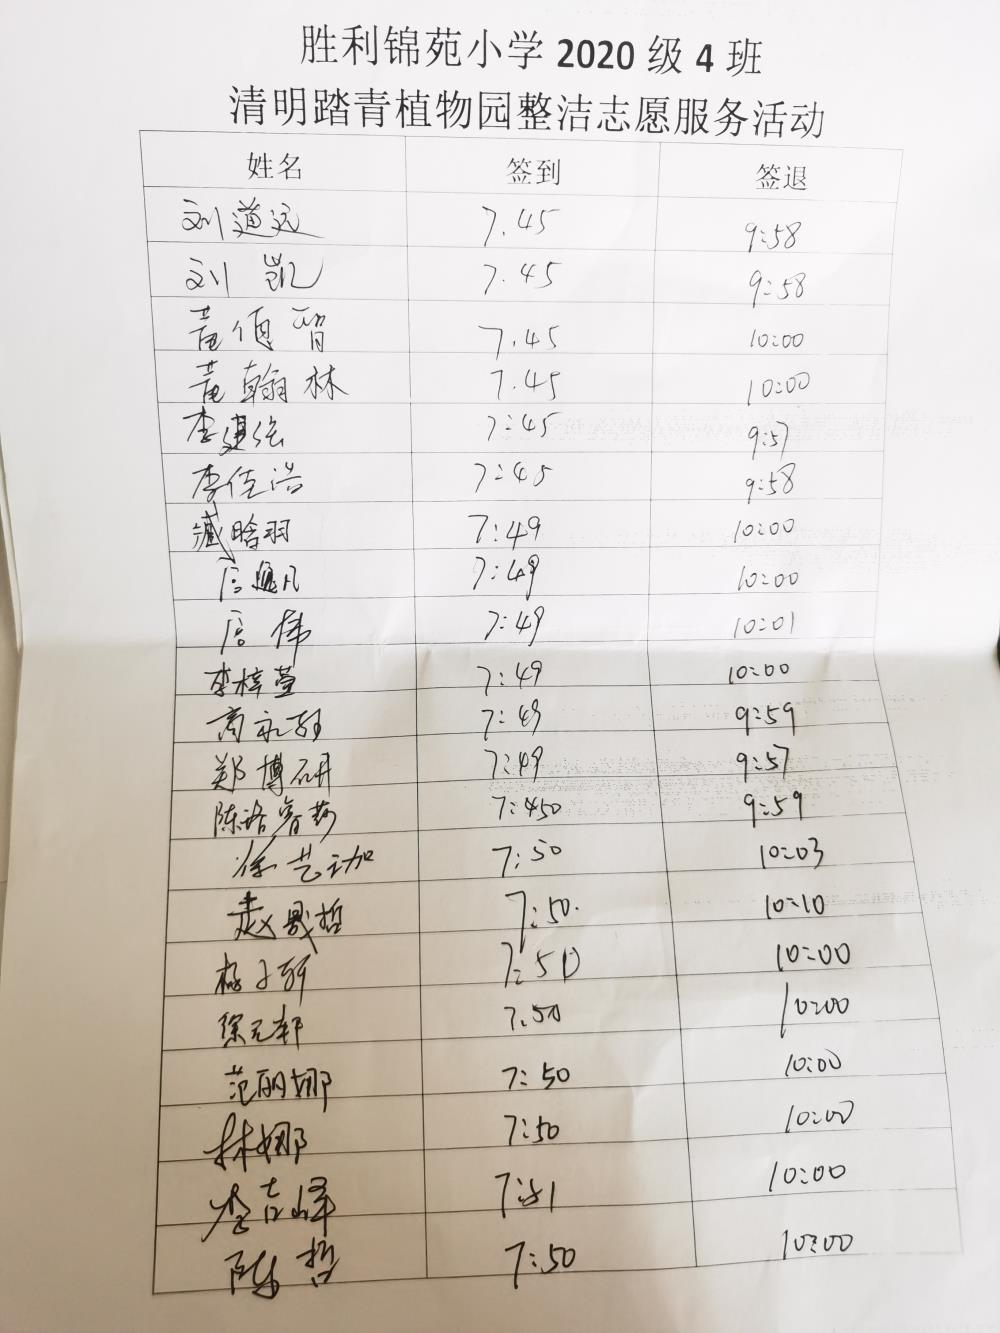 胜利锦苑小学 2020 级 4 班
清明踏青植物园整洁志愿服务活动
姓名 签到 签退
刘道远 7.45 9:58
刘凯 7.45 9:58
黄伯智 7.45 10:00
黄翰林 7.45 10:00
李建强 7:45 9:57
李佳浩 7:45 9:58
臧晗羽 7:49 10:00
7:49 10:00
7:49 10:01
李梓萱 7:49 10:00
7:49 9:59
郑博研 7:49 9:57
陈洛 7:450 9:59
徐艺珈 7:50 10:03
赵晟哲 7:50. 10:10
杨子轩 7:50 10:00
徐元轩 7.50 10:00
范丽娜 7:50 10:00
林娜 7:50 10:00
李吉峰 7:51 10:00
陈哲 7:50 10:00